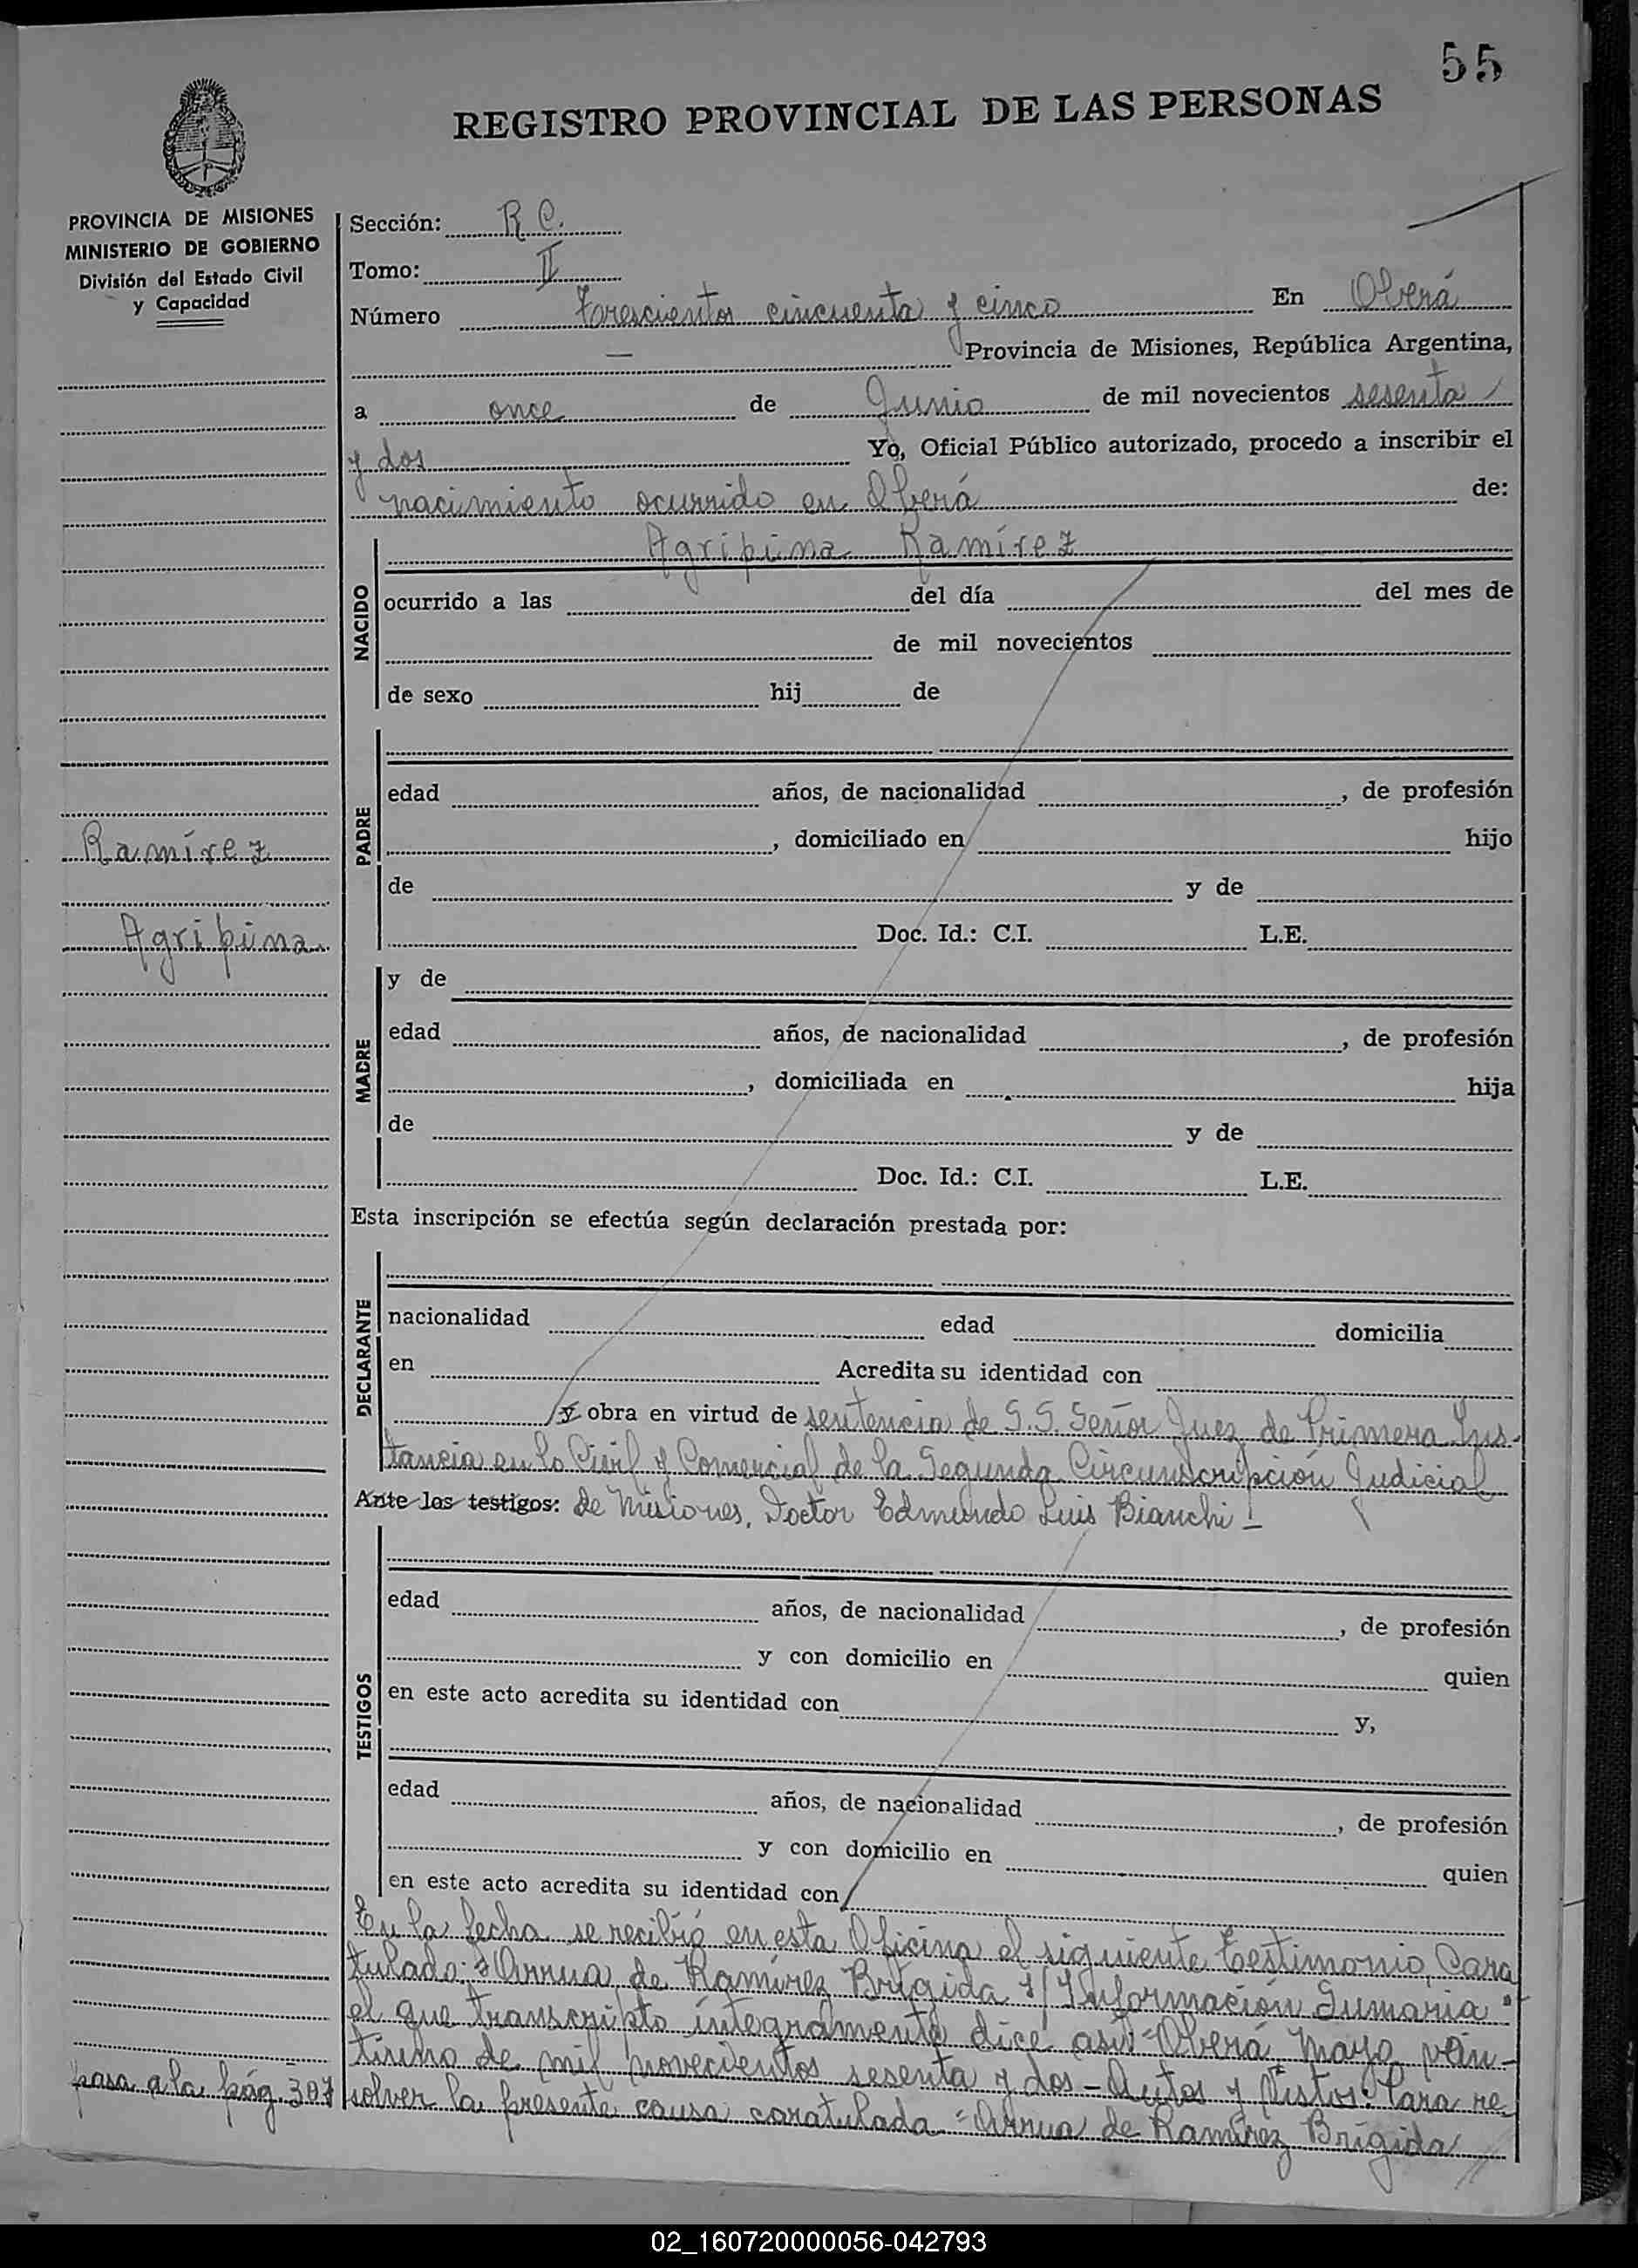 55
REGISTRO PROVINCIAL DE LAS PERSONAS
PROVINCIA DE MISIONES
MINISTERIO DE GOBIERNO
División del Estado Civil
y Capacidad
Sección: R C.
Tomo: II
Número Trescientos cincuenta y cinco En Oberá
— Provincia de Misiones, República Argentina,
a once de Junio de mil novecientos sesenta
y dos Yo, Oficial Público autorizado, procedo a inscribir el
nacimiento ocurrido en Oberá de:
Agripina Ramírez
NACIDO
ocurrido a las del día del mes de
de mil novecientos
de sexo hij de
PADRE
edad años, de nacionalidad , de profesión
, domiciliado en hijo
de y de
Doc. Id.: C.I. L.E.
Ramírez
Agripina
MADRE
y de
edad años, de nacionalidad , de profesión
, domiciliada en hija
de y de
Doc. Id.: C.I. L.E.
Esta inscripción se efectúa según declaración prestada por:
DECLARANTE
nacionalidad edad domicilia
en Acredita su identidad con
y obra en virtud de sentencia de S.S. Señor Juez de Primera Ins-
tancia en lo Civil y Comercial de la Segunda Circunscripción Judicial
Ante los testigos: de Misiones, Doctor Edmundo Luis Bianchi -
TESTIGOS
edad años, de nacionalidad , de profesión
y con domicilio en quien
en este acto acredita su identidad con y,
edad años, de nacionalidad , de profesión
y con domicilio en quien
en este acto acredita su identidad con
En la fecha se recibió en esta Oficina el siguiente testimonio, Cara
tulado: "Arrua de Ramírez Brígida s/Información Sumaria"
el que transcripto íntegramente dice así: "Oberá, mayo vein-
tiuno de mil novecientos sesenta y dos - Autos y Vistos: Para re
solver la presente causa caratulada "Arrua de Ramírez Brígida
pasa a la pág. 307
02_160720000056-042793